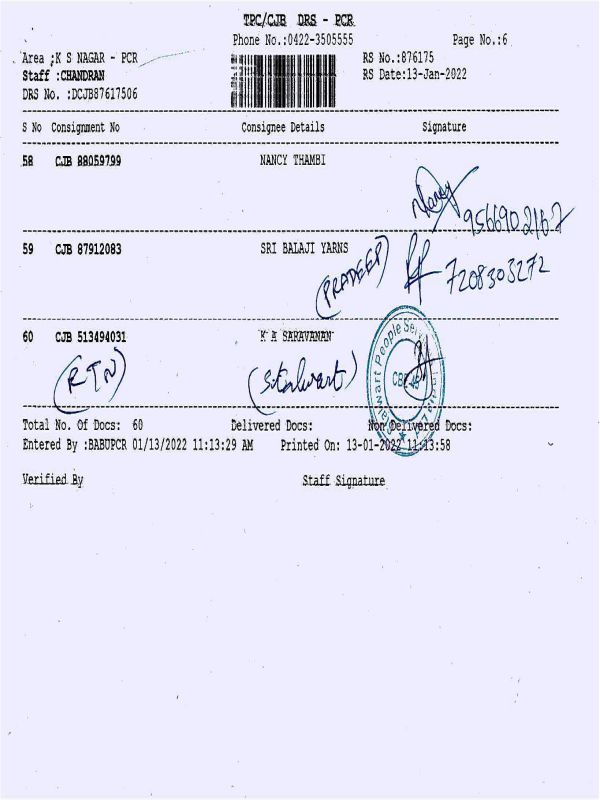 TPC/CJB DRS - PCR
Phone No.:0422-3505555 Page No.:6
Area :K S NAGAR - PCR RS No.:876175
Staff :CHANDRAN RS Date:13-Jan-2022
DRS No. :DCJB87617506
S No Consignment No Consignee Details Signature
58 CJB 88059799 NANCY THAMBI
Nancy
9566902167
59 CJB 87912083 SRI BALAJI YARNS
(PRADEEP) 7208303272
60 CJB 513494031 K A SARAVANAN
(RTN) (Stalwart)
Stalwart People Services India Ltd
Total No. Of Docs: 60 Delivered Docs: Non Delivered Docs:
Entered By :BABUPCR 01/13/2022 11:13:29 AM Printed On: 13-01-2022 11:13:58
Verified By Staff Signature